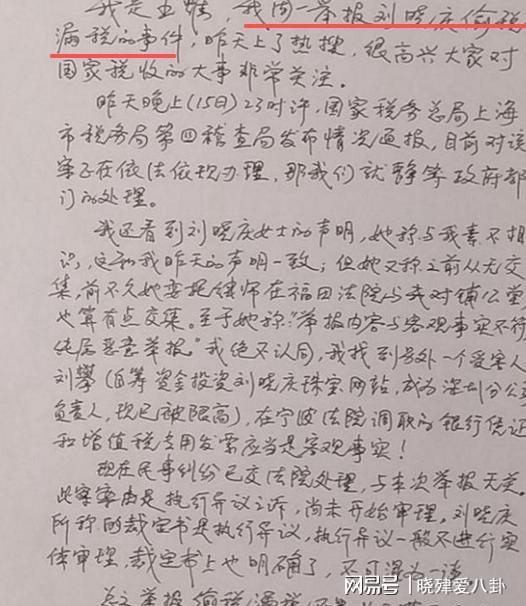 我是五嫂，我周一举报刘晓庆偷税
漏税的事件，昨天上了热搜，很高兴大家对
国家税收的大事非常关注。
昨天晚上（15日）23时许，国家税务总局上海
市税务局第四稽查局发布情况通报，目前对该
案正在依法依规办理，那我们就静等政府部
门的处理。
我还看到刘晓庆女士的声明，她称与我素不相
识，这和我昨天的声明一致；但她又称之前从无交
集，前不久她委托律师在福田法院与我对铺公堂
也算有点交集。至于她称"举报内容与客观事实不符
纯属恶意举报"我绝不认同，我找到另外一个受害人
刘攀（自筹资金投资刘晓庆珠宝网站，成为深圳分公
负责人，现已被限高），在宁波法院调取的银行凭证
和增值税专用发票应当是客观事实！
现在民事纠纷已交法院处理，与本次举报无关。
此案案由是执行异议之诉，尚未开始审理。刘晓庆
所称的裁定书是执行异议，执行异议一般不进行实
体审理，裁定书上也明确了，不可混为一谈
网易号 | 晓建爱八卦